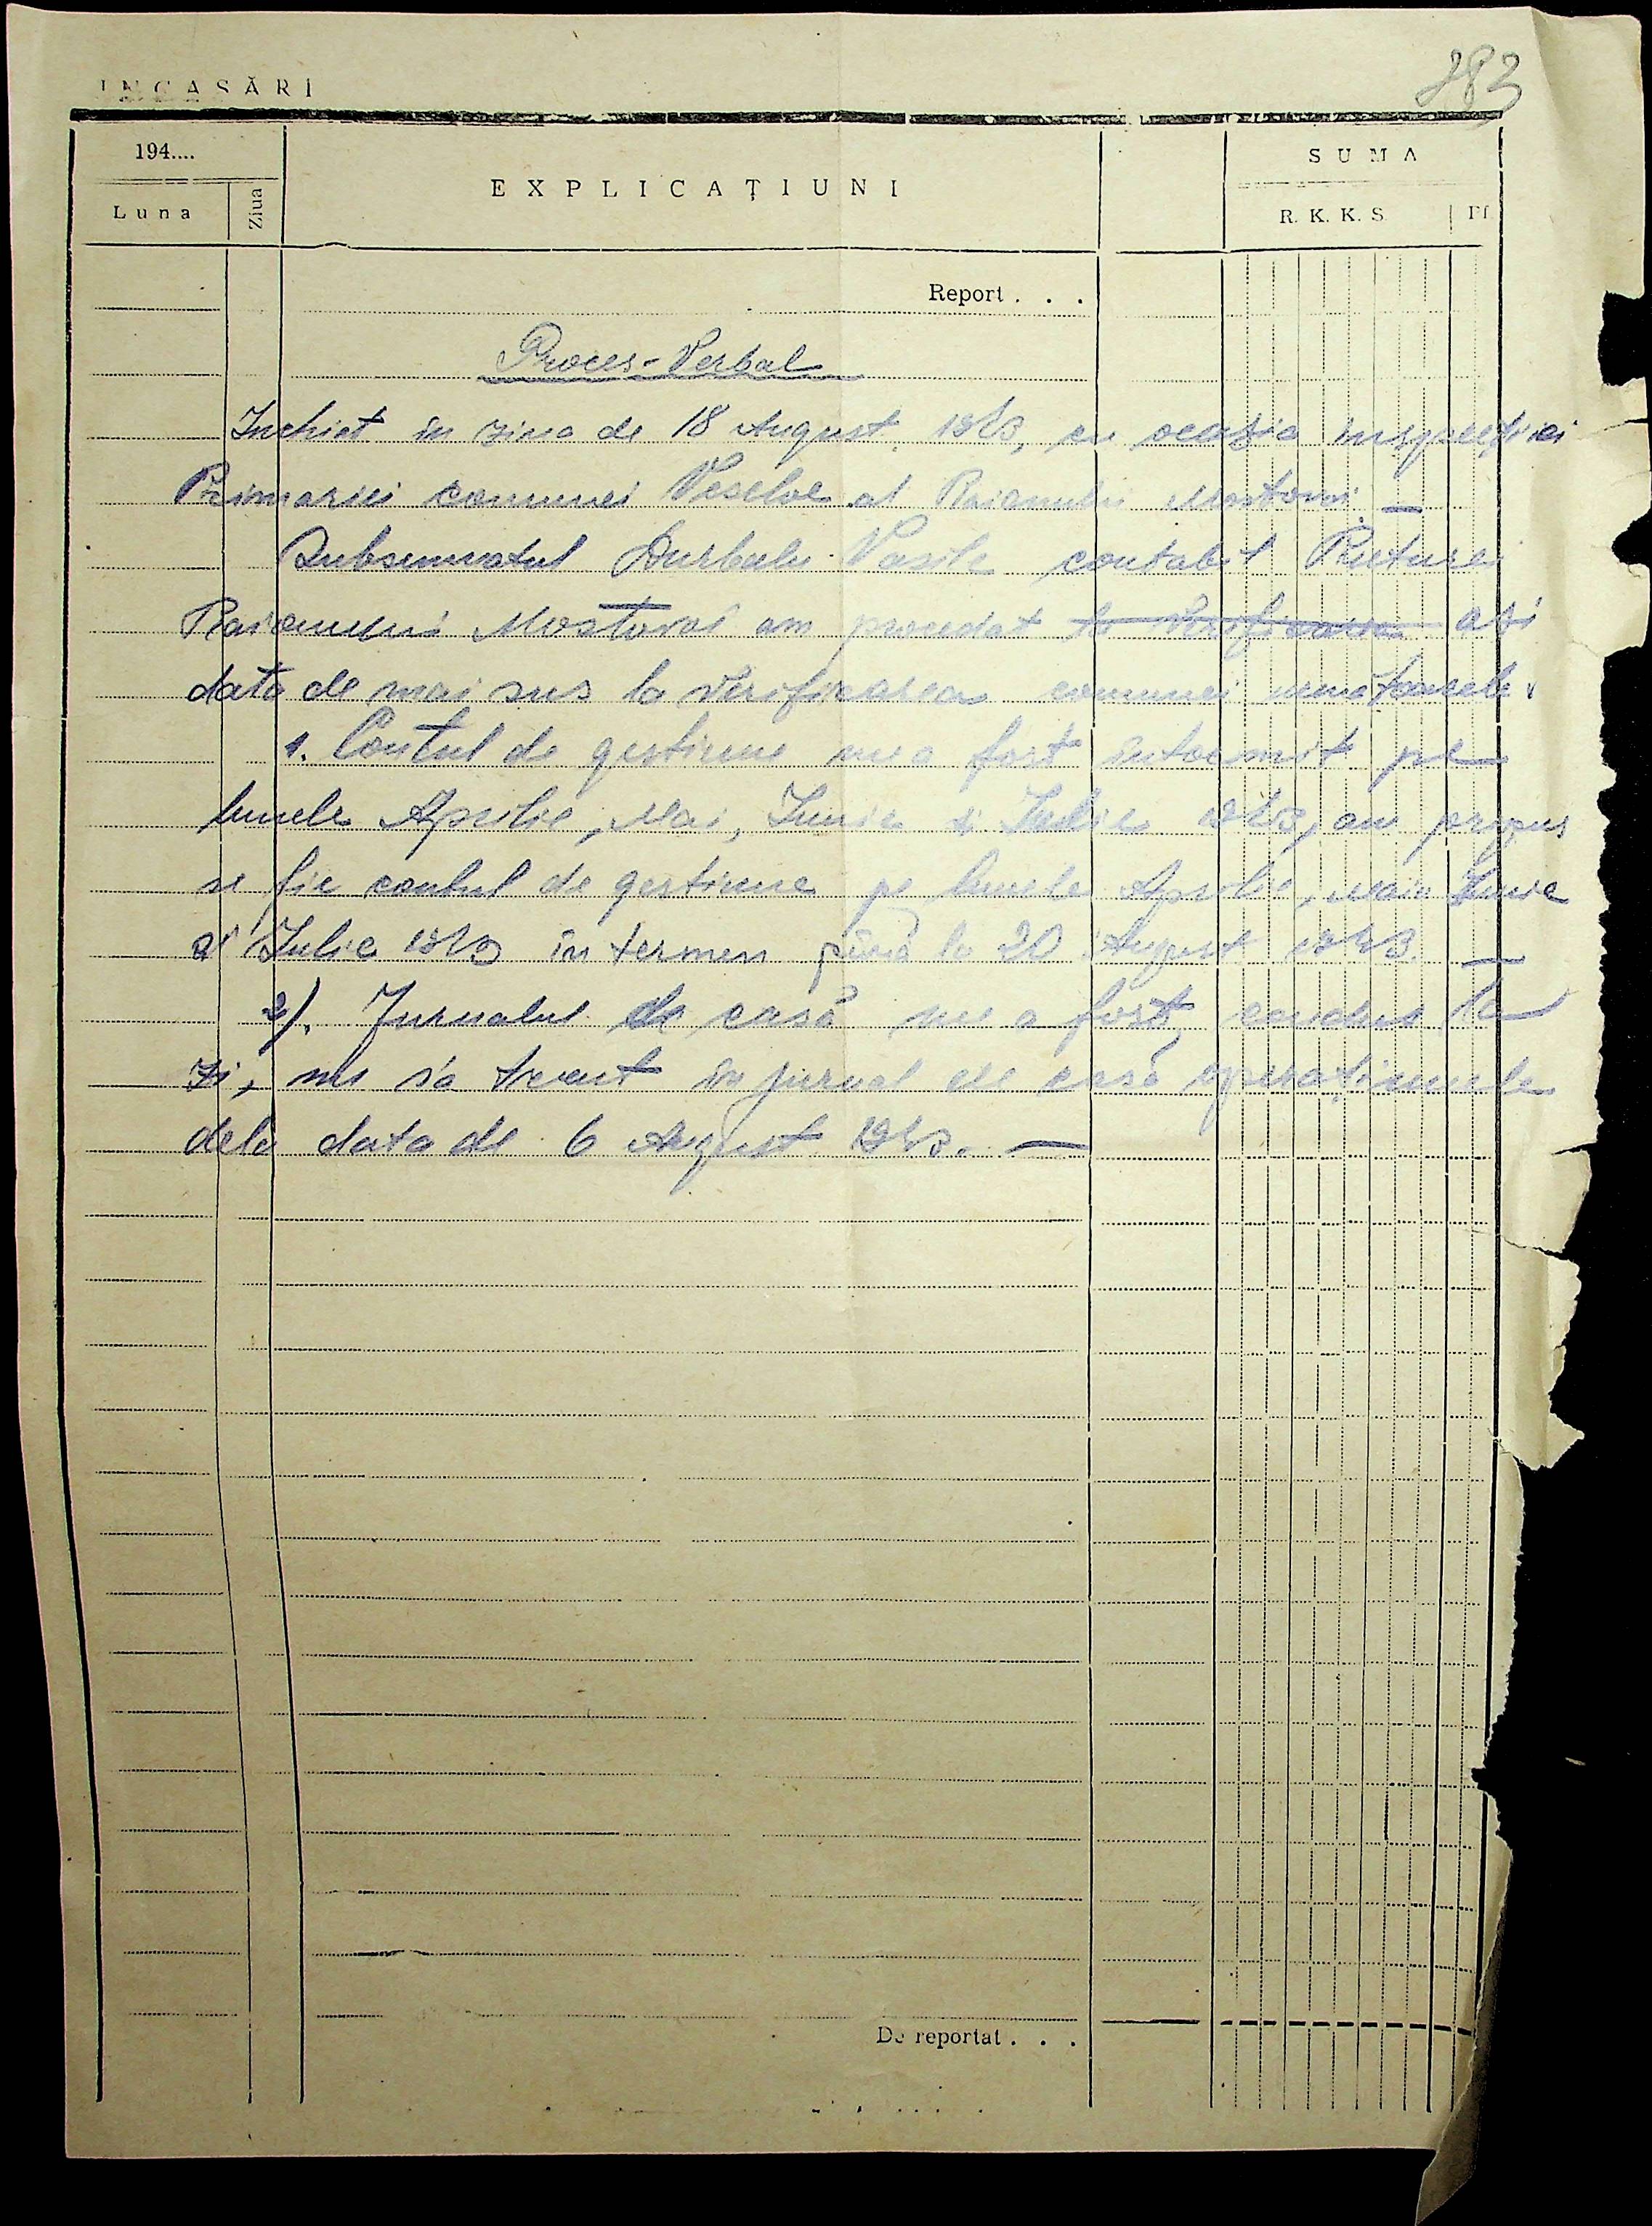 INCASĂRI
283
194....
Luna
Ziua
EXPLICAȚIUNI
SUMA
R. K. K. S.
Pf
Report . . .
Proces-Verbal
Inchiet in ziua de 18 August 1943, cu ocazia inspecției
Primariei comunei Veseloe al Raionului Mostovoi. —
Subsemnatul Vasile contabil Preturei
Raionului Mostovoi am procedat la verificarea azi
data de mai sus la verificarea comunei urmatoarele.
1. Contul de gestiune nu a fost intocmit pe
lunele Aprilie, Mai, Iunie si Iulie 1943, am propus
se fie contul de gestiune pe lunele Aprilie, Mai Iunie
si Iulie 1943 în termen până la 20 August 1943. —
2). Jurnalul de casă nu a fost condus la
zi, nu s'a trecut in jurnal de casă operațiunele
dela data de 6 August 1943. —
De reportat . . .